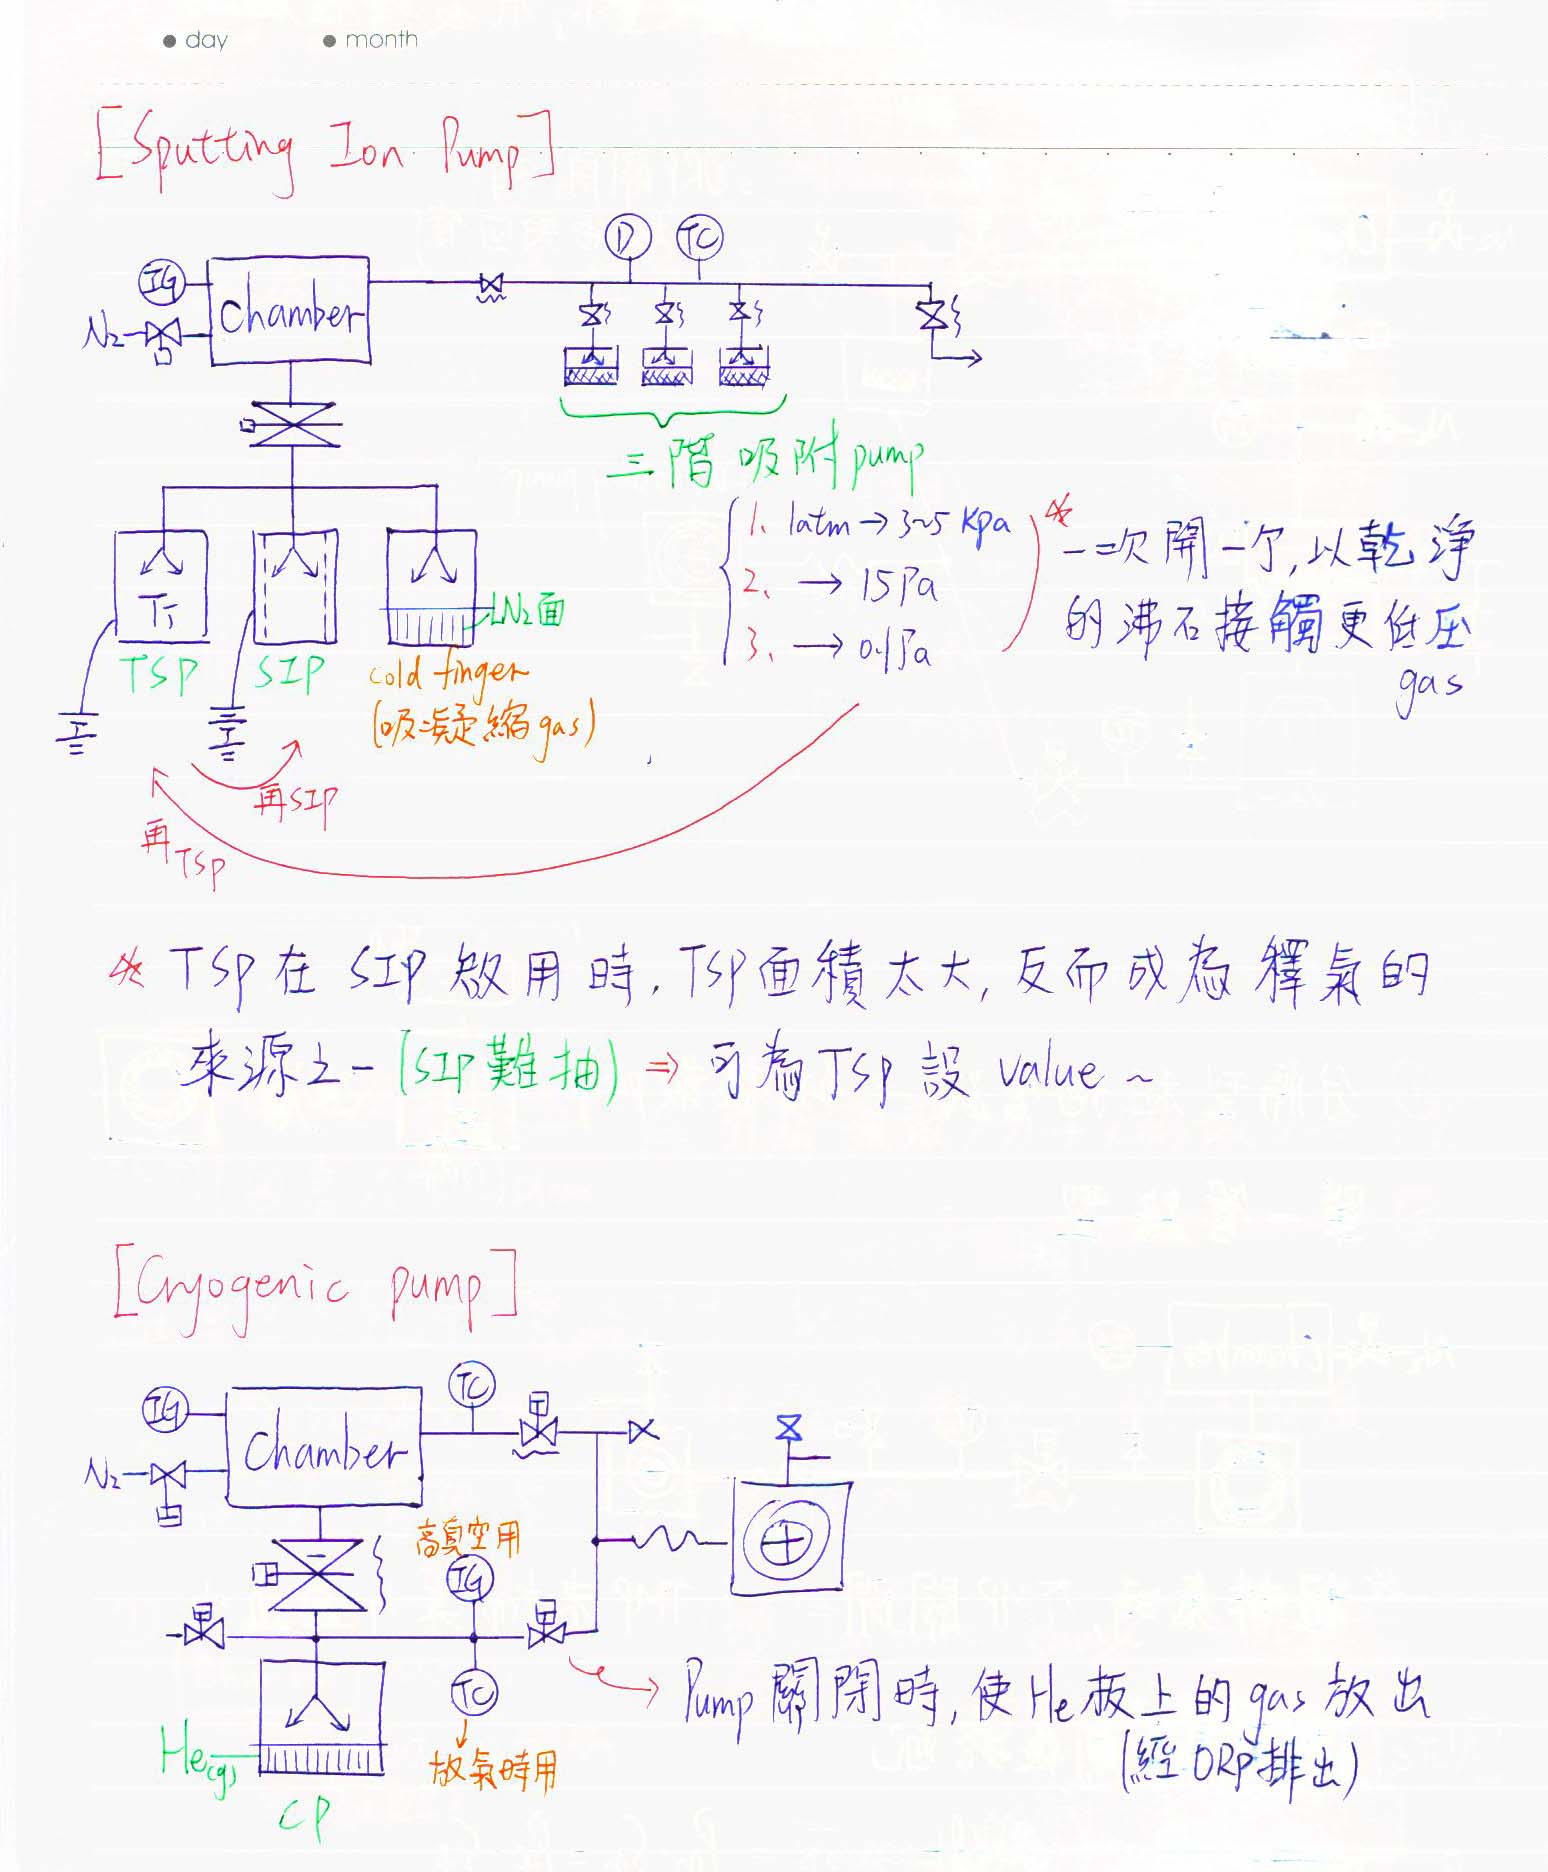 ● day ● month
[Sputting Ion Pump]
D TC
IG
chamber
N2
三階吸附pump
1、1atm→3~5 Kpa
2、→15Pa
3、→0.1Pa
一次開一个,以乾淨
的沸石接觸更低压
gas
Ti
LN2面
TSP SIP cold finger
(吸凝縮gas)
再SIP
再TSP
TSP在 SIP 啟用時,TSP面積太大,反而成為釋氣的
來源之一(SIP難抽)⇒可為TSP設 value ~
[Cryogenic pump]
TC
IG
Chamber
N2
高真空用
IG
TC
Pump關閉時,使He板上的gas放出
(經ORP排出)
He(g)
放氣時用
CP